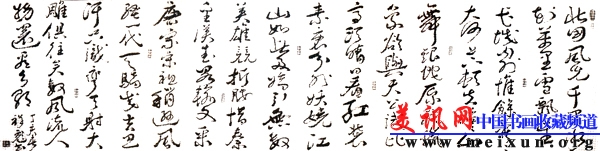 北国风光千里冰
封万里雪飘望
长城内外惟余莽
大河上下顿失滔
舞银蛇原驰蜡
象欲与天公试比
高须晴日看红装
素裹分外妖娆江
山如此多娇引无数
英雄竞折腰惜秦
皇汉武略输文采
唐宗宋祖稍逊风
骚一代天骄成吉思
汗只识弯弓射大
雕俱往矣数风流人
物还看今朝
丁亥
美讯网 中国书画收藏频道
www.meixun.org